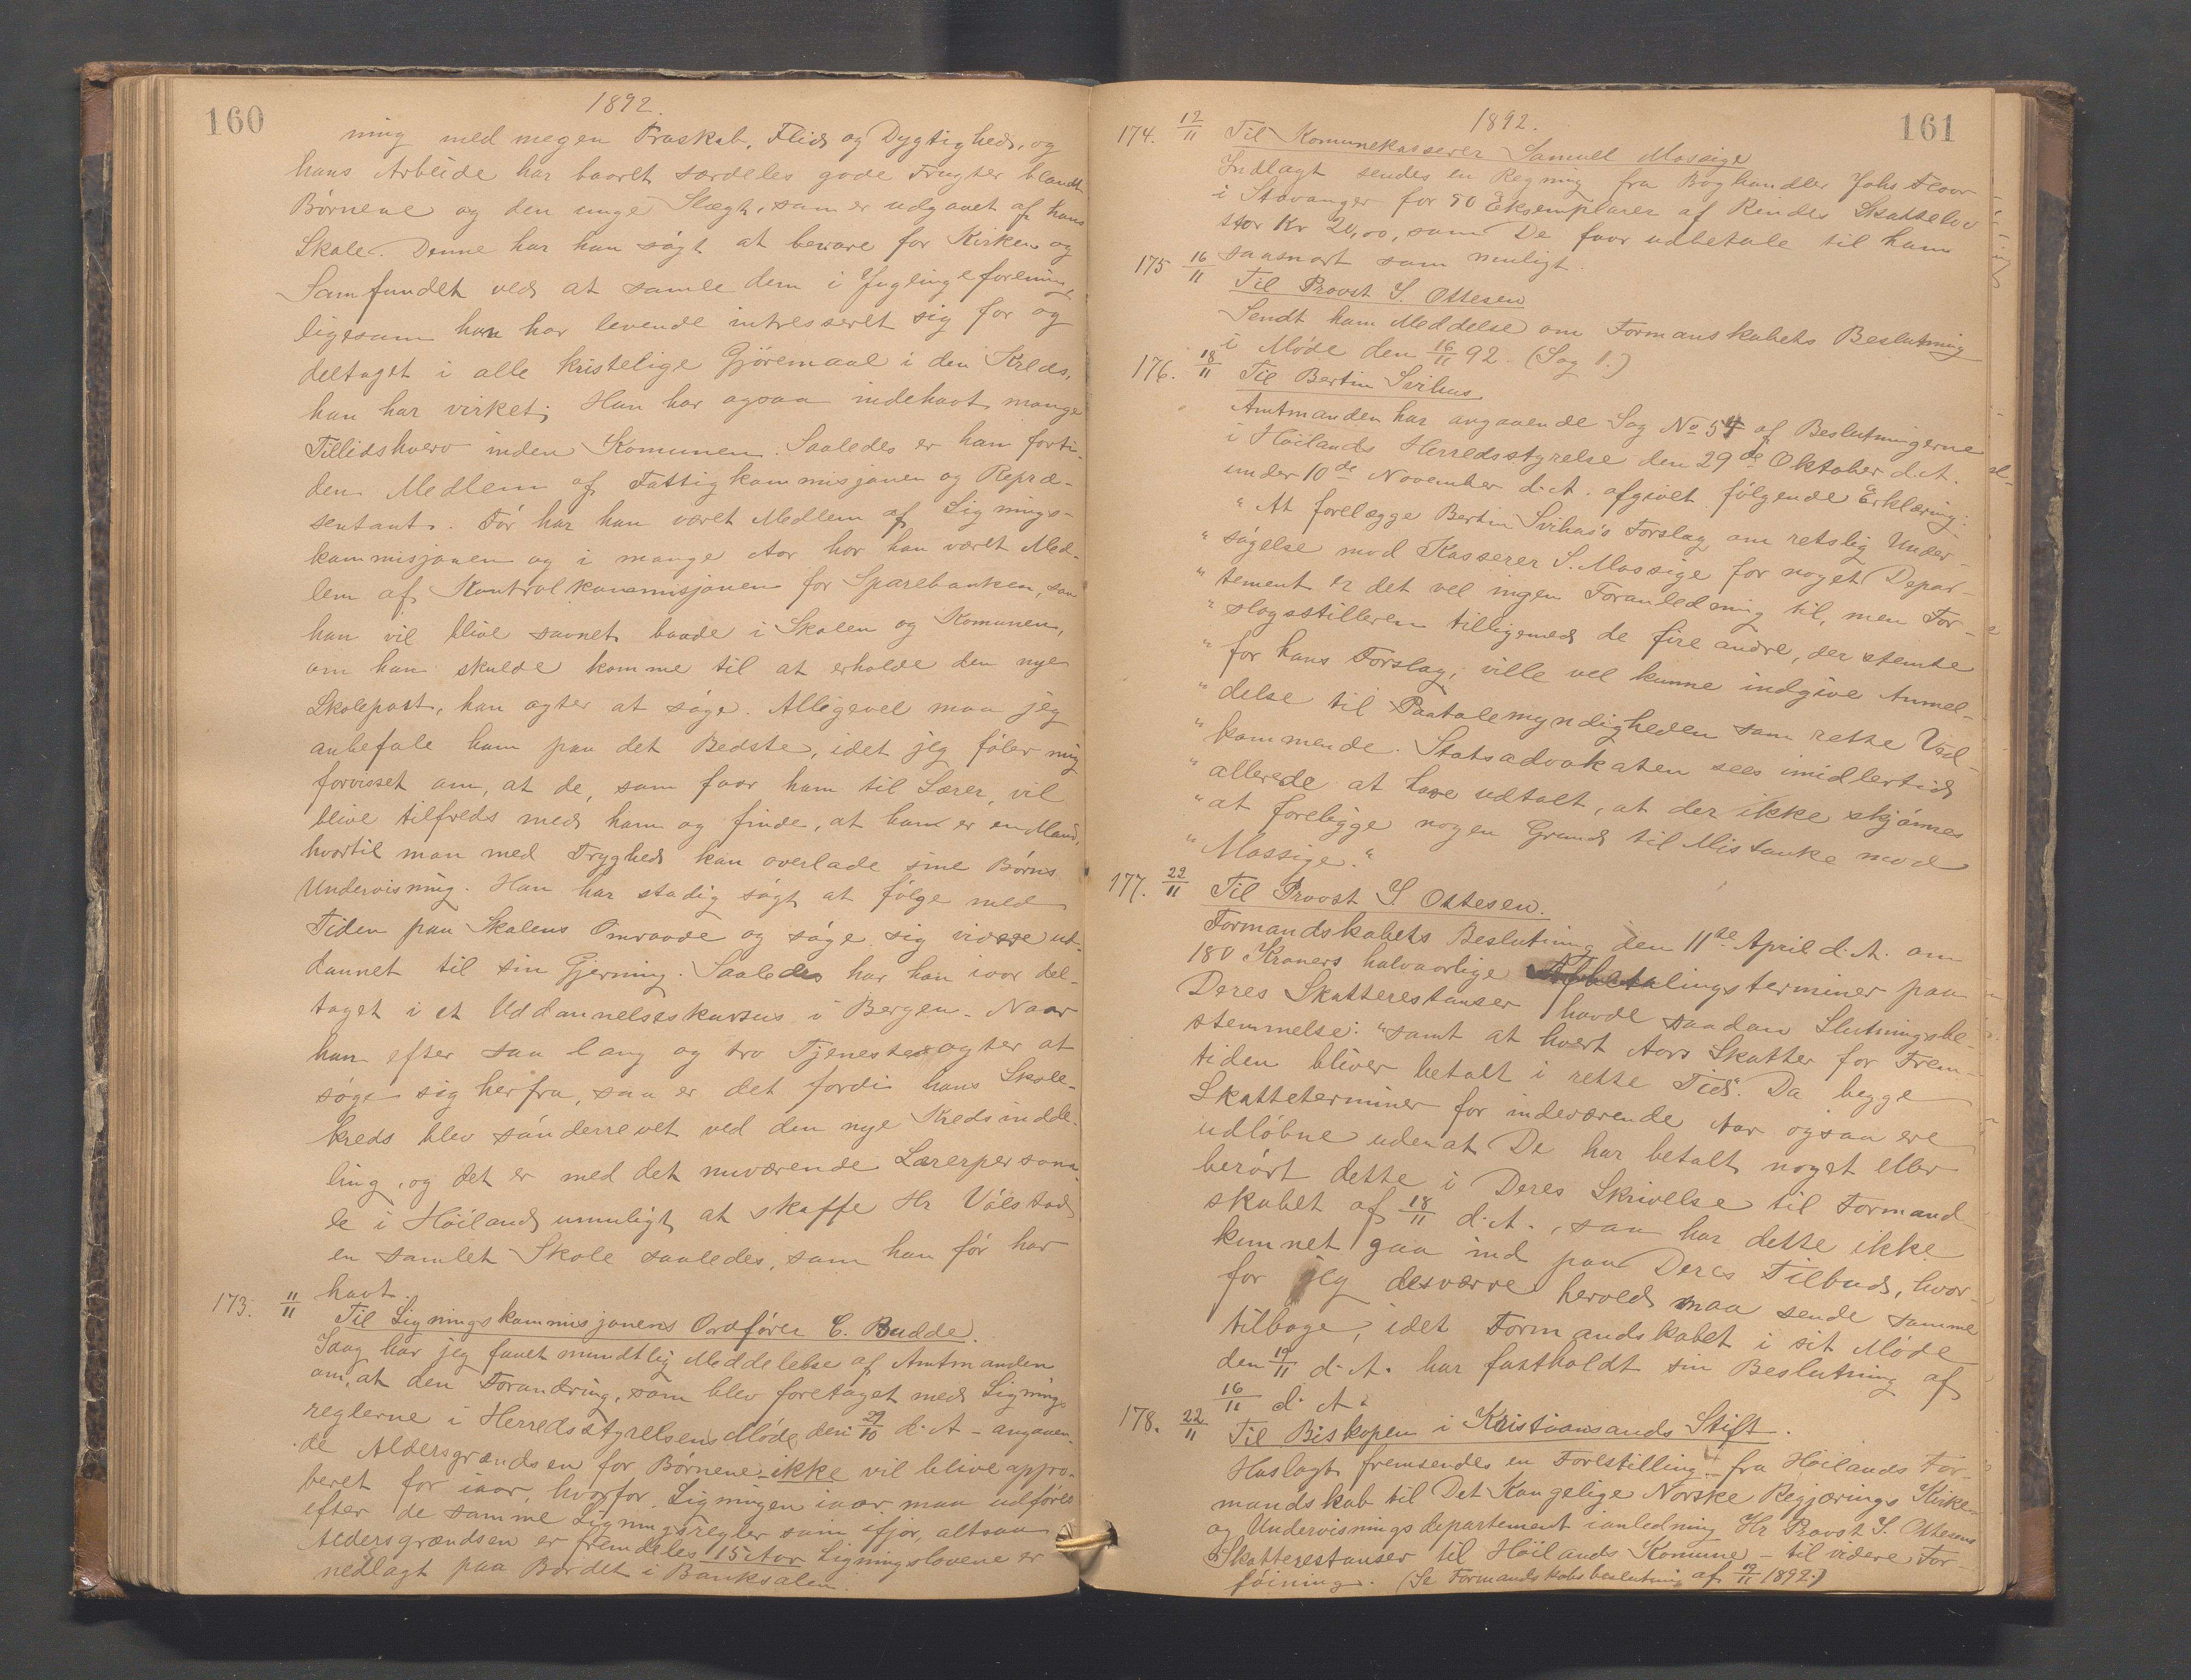 160
1892.
ning med megen Troskab, Flid og Dygtighed, og
hans Arbeide har baaret særdeles gode Frugter blandt
Børnene og den unge Slægt, som er udgaaet af hans
Skole. Denne har han søgt at bevare for Kirken og
Samfundet ved at samle dem i Ynglingeforening,
ligesom han har levende intresseret sig for og
deltaget i alle kristelige Gjøremaal i den Kreds,
han har virket; Han har ogsaa indehavt mange
Tillidshverv inden Komunen. Saaledes er han forti-
den Medlem af Fattigkommisjonen og Repræ-
sentant. Før har han været Medlem af Lignings-
kommisjonen og i mange Aar har han været Med-
lem af Kontrolkommisjonen for Sparebanken, saa
han vil blive savnet baade i Skolen og Komunen,
om han skulde komme til at erholde den nye
Skolepost, han agter at søge. Alligevel maa jeg
anbefale ham paa det Bedste, idet jeg føler mig
forvisset om, at de, som faar ham til Lærer, vil
blive tilfreds med ham og finde, at han er en Mand,
hvortil man med Tryghed kan overlade sine Børns
Undervisning. Han har stadig søgt at følge med
Tiden paa Skolens Omraade og søge sig videre ud-
dannet til sin Gjerning. Saaledes har han iaar del-
taget i et Uddannelseskursus i Bergen. Naar
han efter saa lang og tro Tjeneste agter at
søge sig herfra, saa er det fordi hans Skole-
kreds blev sønderrevet ved den nye Kredsindde-
ling, og det er med det nuværende Lærerpersona-
le i Høiland umuligt at skaffe Hr Vølstad
en samlet Skole saaledes, som han før har
havt.
173. 11/11 Til Ligningskommisjonens Ordfører C. Budde.
Idag har jeg faaet mundtlig Meddelelse af Amtmanden
om, at den Forandring, som blev foretaget med Lignings
reglerne i Herredsstyrelsens Møde den 29/10 d. A - angaaen-
de Aldersgrændsen for Børnene - ikke vil blive appro-
beret for iaar, hvorfor Ligningen iaar maa udføres
efter de samme Ligningsregler som ifjor, altsaa
Aldersgrændsen er fremdeles 15 Aar Ligningslovene er
nedlagt paa Bordet i Banksalen.
161
1892.
174. 12/11 Til Komunekasserer Samuel Mossige
Indlagt sendes en Regning fra Boghandler Johs Floor
i Stavanger for 50 Eksemplarer af Rindes Skattelov
stor Kr 20,00, som De faar udbetale til ham
saasnart som muligt.
175 16/11 Til Provst S. Ottesen
Sendt ham Meddelse om Formanskabets Beslutning
i Møde den 16/11 92. (Sag 1.)
176. 18/11 Til Bertin Svihus
Amtmanden har angaaende Sag No 54 af Beslutningerne
i Høilands Herredsstyrelse den 29de Oktober d. A.
under 10de November d. A. afgivet følgende Erklæring:
"At forelægge Bertin Svihus's Forslag om retslig Under-
"søgelse mod Kasserer S. Mossige for noget Depar-
"tement er det vel ingen Foranledning til, men For-
"slagsstilleren tilligemed de fire andre, der stemte
"for hans Forslag, ville vel kunne indgive Anmel-
"delse til Paatalemyndigheden som rette Ved-
"kommende. Statsadvokaten sees imidlertid
"allerede at have udtalt, at der ikke skjønnes
"at foreligge nogen Grund til Mistanke mod
"Mossige."
177. 22/11 Til Provst S. Ottesen.
Formandskabets Beslutning den 11te April d. A. om
180 Kroners halvaarlige Afbetalingsterminer paa
Deres Skatterestanser havde saadan Slutningsbe-
stemmelse: "samt at hvert Aars Skatter for Frem-
tiden bliver betalt i rette Tid." Da begge
Skatteterminer for indeværende Aar ogsaa ere
udløbne uden at De har betalt noget eller
berørt dette i Deres Skrivelse til Formand-
skabet af 18/11 d. A., saa har dette ikke
kunnet gaa ind paa Deres Tilbud, hvor-
for jeg desværre herved maa sende samme
tilbage, idet Formandskabet i sit Møde
den 19/11 d. A. har fastholdt sin Beslutning af
16/11 d. A.
178. 22/11 Til Biskopen i Kristiansands Stift.
Hoslagt fremsendes en Forestilling fra Høilands For-
mandskab til Det Kongelige Norske Regjerings Kirke-
og Undervisningsdepartement ianledning Hr Provst S. Ottesens
Skatterestanser til Høilands Komune - til videre For-
føining. (Se Formandskabsbeslutning af 19/11 1892.)